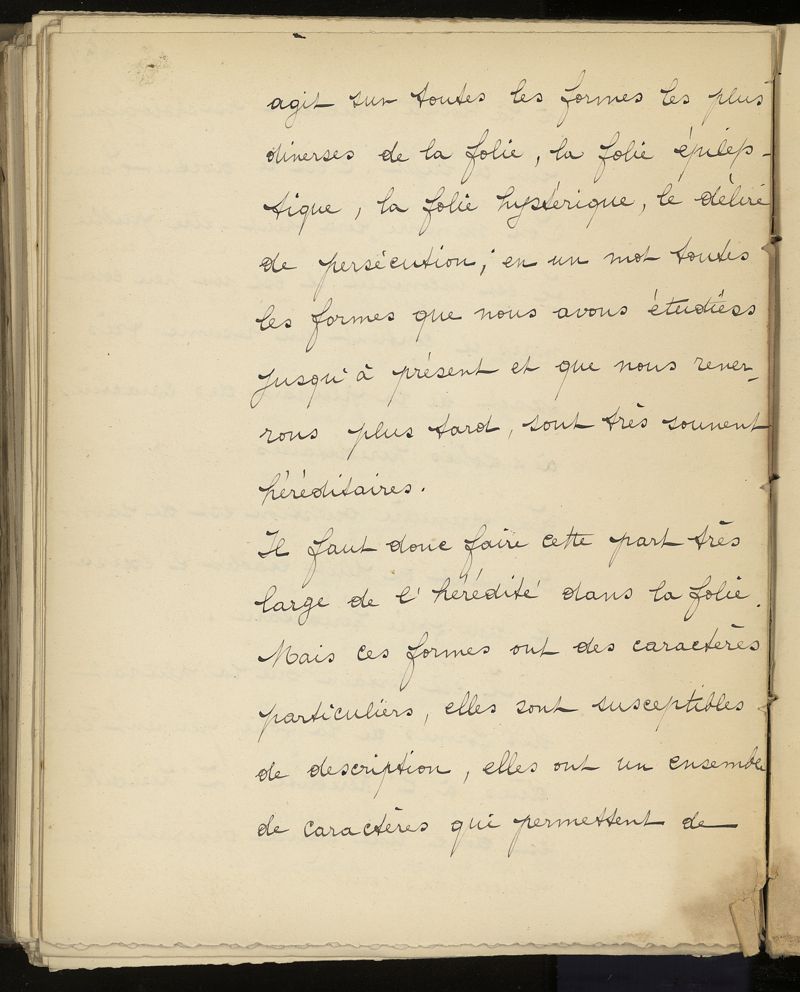 agit sur toutes les formes les plus
diverses de la folie, la folie épilep-
tique, la folie hystérique, le délire
de persécution; en un mot toutes
les formes que nous avons étudiées
jusqu'à présent et que nous rever-
rons plus tard, sont très souvent
héréditaires.
Il faut donc faire cette part très
large de l'hérédité dans la folie.
Mais ces formes ont des caractères
particuliers, elles sont susceptibles
de description, elles ont un ensemble
de caractères qui permettent de